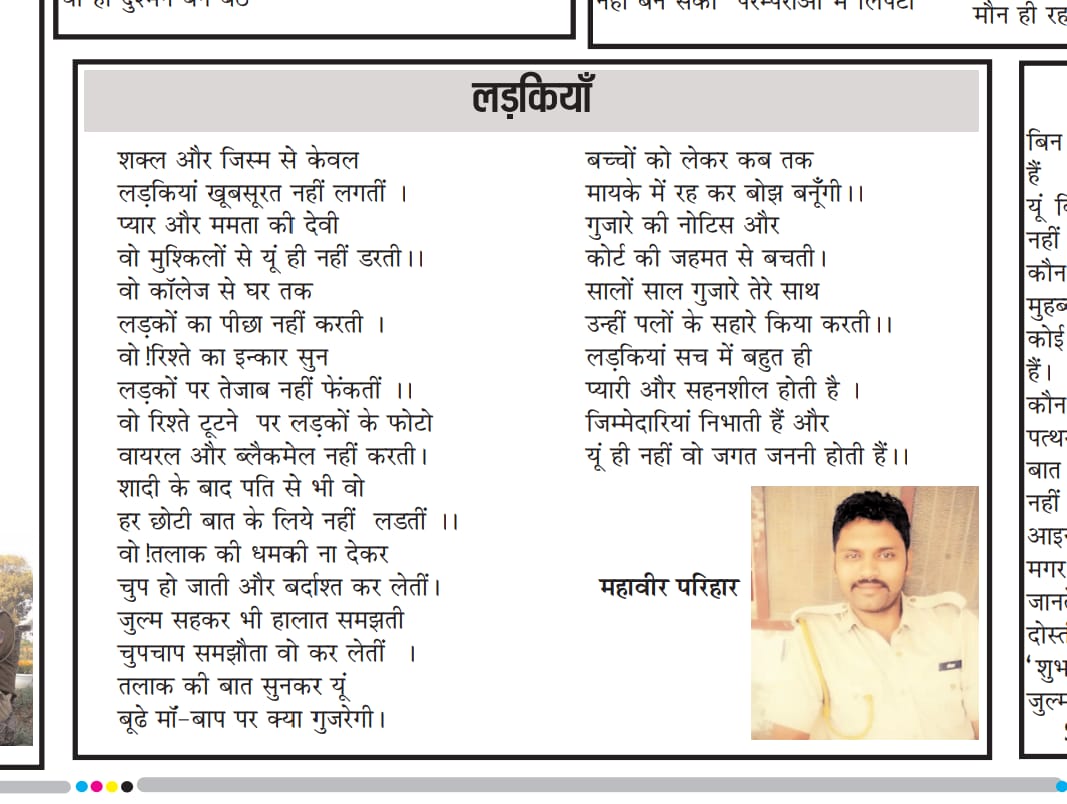 लड़कियाँ
शक्ल और जिस्म से केवल
लड़कियां खूबसूरत नहीं लगतीं ।
प्यार और ममता की देवी
वो मुश्किलों से यूं ही नहीं डरती।।
वो कॉलेज से घर तक
लड़कों का पीछा नहीं करती ।
वो !रिश्ते का इन्कार सुन
लड़कों पर तेजाब नहीं फेंकतीं ।।
वो रिश्ते टूटने पर लड़कों के फोटो
वायरल और ब्लैकमेल नहीं करती।
शादी के बाद पति से भी वो
हर छोटी बात के लिये नहीं लडतीं ।।
वो !तलाक की धमकी ना देकर
चुप हो जाती और बर्दाश्त कर लेतीं।
जुल्म सहकर भी हालात समझती
चुपचाप समझौता वो कर लेतीं ।
तलाक की बात सुनकर यूं
बूढे माँ-बाप पर क्या गुजरेगी।
बच्चों को लेकर कब तक
मायके में रह कर बोझ बनूँगी।।
गुजारे की नोटिस और
कोर्ट की जहमत से बचती।
सालों साल गुजारे तेरे साथ
उन्हीं पलों के सहारे किया करती।।
लड़कियां सच में बहुत ही
प्यारी और सहनशील होती है ।
जिम्मेदारियां निभाती हैं और
यूं ही नहीं वो जगत जननी होती हैं।।
महावीर परिहार
मौन ही
बिन
हैं
यूं
नहीं
कौन
कोई
हैं।
कौन
बात
नहीं
मगर